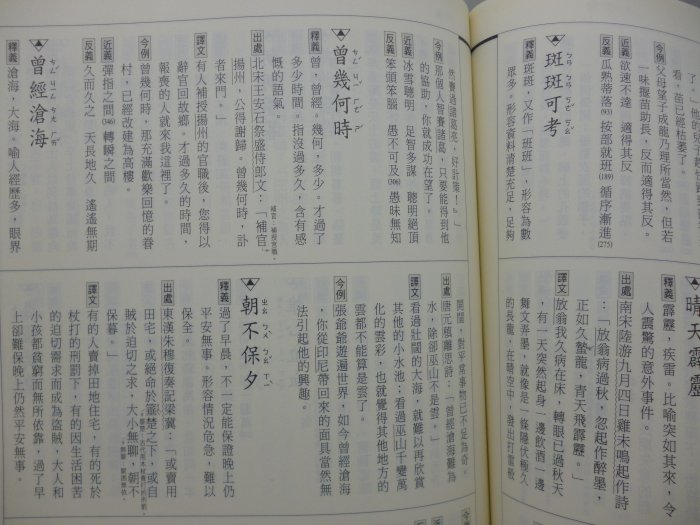 看，苗已經枯萎了。
今例父母望子成龍乃理所當然，但若
一味揠苗助長，反而適得其反。
近義欲速不達　適得其反
反義瓜熟蒂落(93)　按部就班(189)　循序漸進(275)
班班可考
釋義班班，又作「斑斑」，形容為數
眾多，形容資料清楚充足，足夠
然賽過諸葛亮，好計策！』」
今例那個人智賽諸葛，只要能得到他
的協助，你就成功在望了。
近義冰雪聰明　足智多謀　聰明絕頂
反義笨頭笨腦　愚不可及(306)　愚昧無知
曾幾何時
釋義曾，曾經。幾何，多少。才過了
多少時間。指沒過多久，含有感
慨的語氣。
出處北宋王安石祭盛侍郎文：「補官
補官：補授官職。
揚州，公得謝歸。曾幾何時，訃
者來門。」
譯文有人補授揚州的官職後，您得以
辭官回故鄉。才過多久的時間，
報喪的人就來我這裡了。
今例曾幾何時，那充滿歡樂回憶的眷
村，已經改建為高樓。
近義彈指之間(346)　轉瞬之間
反義久而久之　天長地久　遙遙無期
曾經滄海
釋義滄海，大海。喻人經歷多，眼界
晴天霹靂
釋義霹靂，疾雷。比喻突如其來，令
人震驚的意外事件。
出處南宋陸游九月四日雞未鳴起作詩
：「放翁病過秋，忽起作醉墨，
正如久蟄龍，青天飛霹靂。」
譯文放翁我久病在床，轉眼已過秋天
，有一天突然起身一邊飲酒一邊
舞文弄墨，就像是一條隱伏極久
的長龍，在晴空中，發出打雷般
開闊，對平常事物已不足為奇。
出處唐元稹離思詩：「曾經滄海難為
水，除卻巫山不是雲。」
譯文看過壯闊的大海，就難以再欣賞
其他的小水池；看過巫山千變萬
化的雲彩，也就覺得其他地方的
雲都不能算是雲了。
今例張爺爺遊遍世界，如今曾經滄海
，你從印尼帶回來的面具當然無
法引起他的興趣。
朝不保夕
釋義過了早晨，不一定能保證晚上仍
平安無事。形容情況危急，難以
保全。
出處東漢朱穆復奏記梁冀：「或賣用
田宅，或絕命於箠楚之下，或自
賊於迫切之求，大小無聊，朝不
保暮。」
譯文有的人賣掉田地住宅，有的死於
杖打的刑罰下，有的因生活困苦
的迫切需求而成為盜賊，大人和
小孩都貧窮而無所依靠，過了早
上卻難保晚上仍然平安無事。